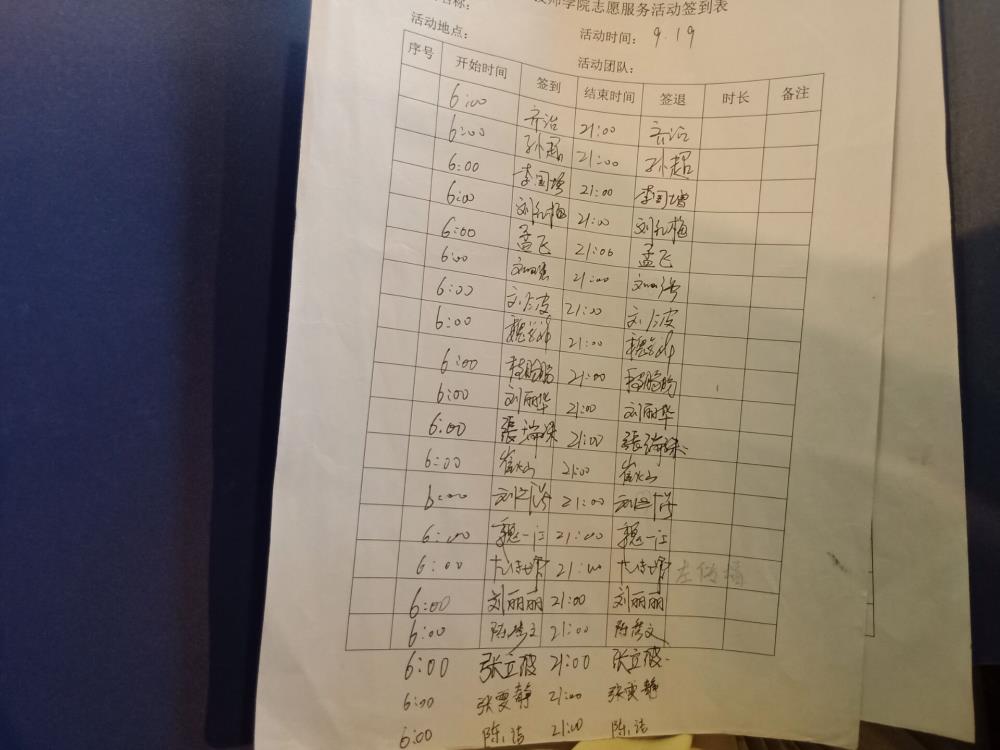 名称：
师学院志愿服务活动签到表
活动地点： 活动时间：9.19
活动团队：
序号 开始时间 签到 结束时间 签退 时长 备注
6:00 齐治 21:00 齐治
6:00 孙超 21:00 孙超
6:00 李国增 21:00 李国增
6:00 刘红梅 21:00 刘红梅
6:00 孟飞 21:00 孟飞
6:00 21:00
6:00 刘波 21:00 刘波
6:00 21:00
6:00 21:00
6:00 刘丽华 21:00 刘丽华
6:00 張瑞珠 21:00 張瑞珠
6:00 崔火山 21:00 崔火山
6:00 21:00
6:00 魏一江 21:00 魏一江
6:00 21:00 左传增
6:00 刘丽丽 21:00 刘丽丽
6:00 陈彦文 21:00 陈彦文
6:00 张立波 21:00 张立波
6:00 张雯静 21:00 张雯静
6:00 陈洁 21:00 陈洁